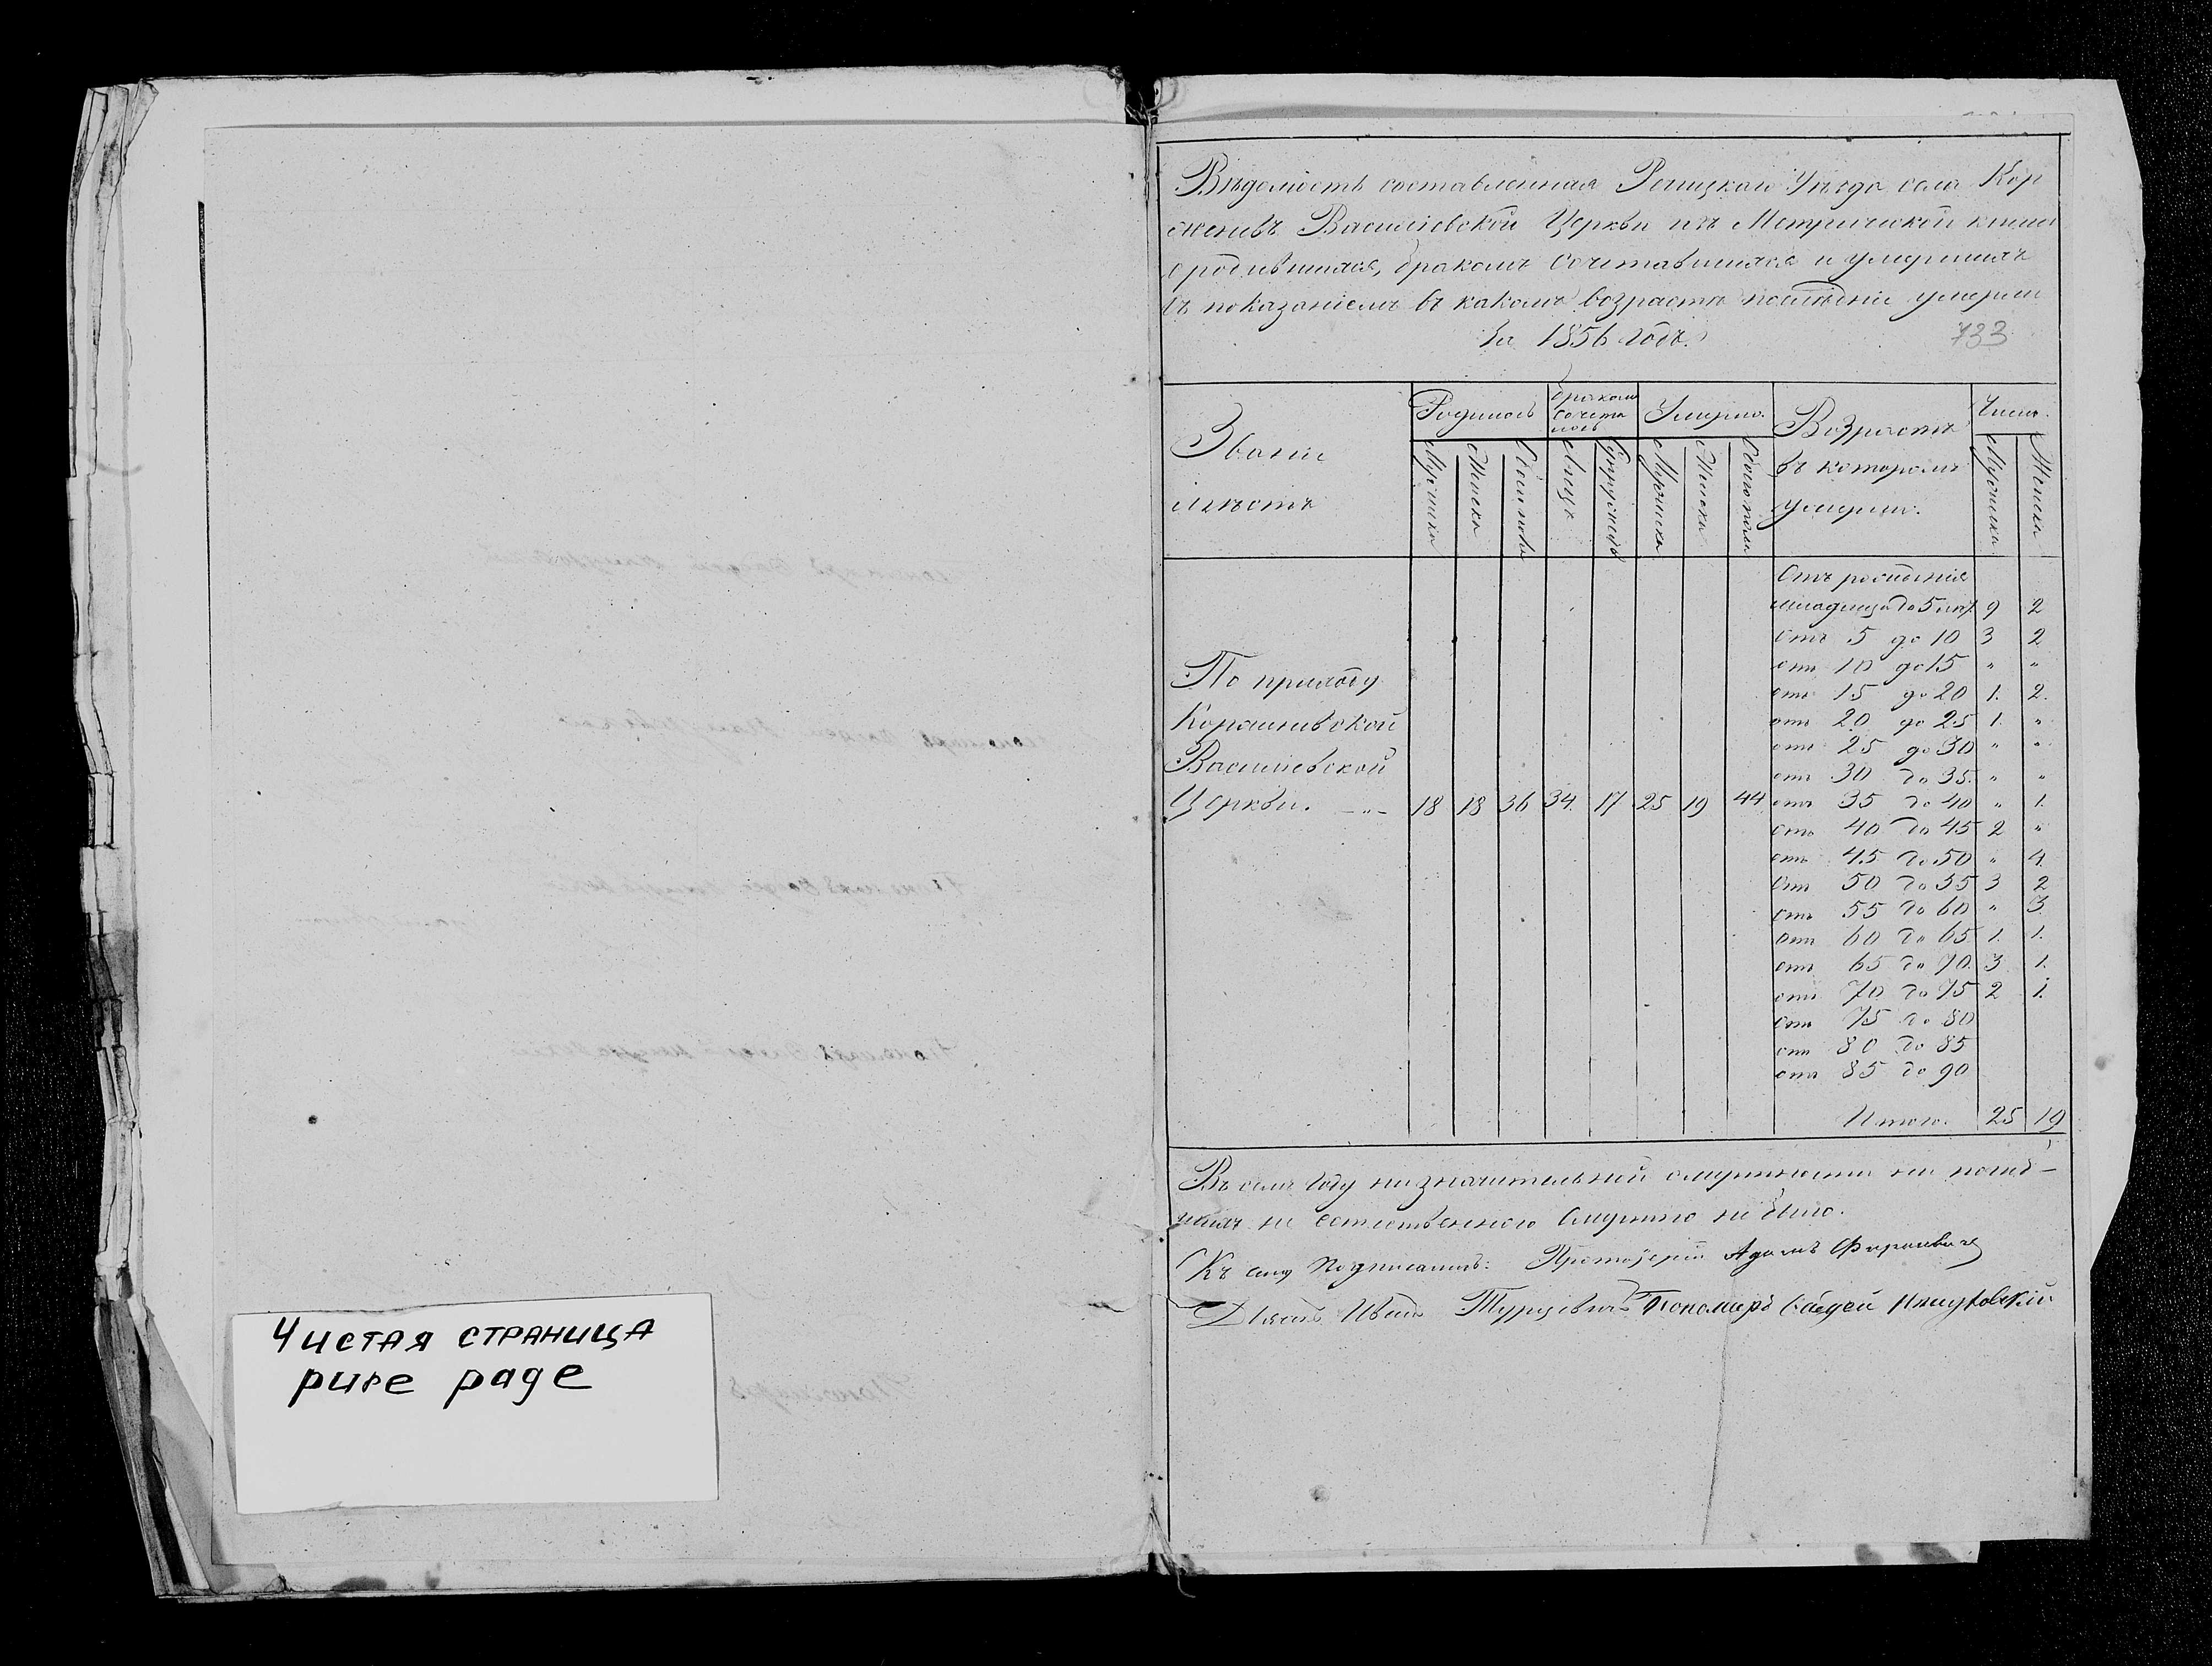 Чистая страница
pure page
Вѣдомость составленная Рѣчицкаго Уѣзда села Кор
женевъ Васильевской Церкви изъ Метрической книги
о родившихся, бракомъ сочетавшихся и умершихъ
съ показаніемъ въ какомъ возрастѣ послѣдніе умерли
За 1856 годъ.
733
Званіе
мѣстъ
Родилось
Бракомъ
сочета
лось
Умерло
Возрастъ
въ которомъ
умерли.
Число.
Мужеска
Женска
Обоего пола
Лицъ
Супружествъ
Мужеска
Женска
Обоего пола
Мужеска
Женска
Отъ рожденія
младенца до 5 лѣтъ 9 2
отъ 5 до 10 3 2
отъ 10 до 15 " "
отъ 15 до 20 1. 2.
отъ 20 до 25 1. "
отъ 25 до 30 " "
отъ 30 до 35. " "
По приходу
Корженевской
Васильевской
Церкви. —"— 18 18 36 34. 17 25 19 44 отъ 35 до 40 " 1.
отъ 40 до 45 2 "
отъ 45 до 50 " 4.
отъ 50 до 55 3 2
отъ 55 до 60 " 3.
отъ 60 до 65 1. 1.
отъ 65 до 70. 3 1.
отъ 70 до 75 2 1.
отъ 75 до 80
отъ 80 до 85
отъ 85 до 90
Итого. 25 19
Въ семъ году ни значительной смертности ни погиб-
шихъ не естественною смертію не было.
Къ сему подписались: Протоіерей Адамъ
Дьякъ Иванъ Турцевичъ Пономарь